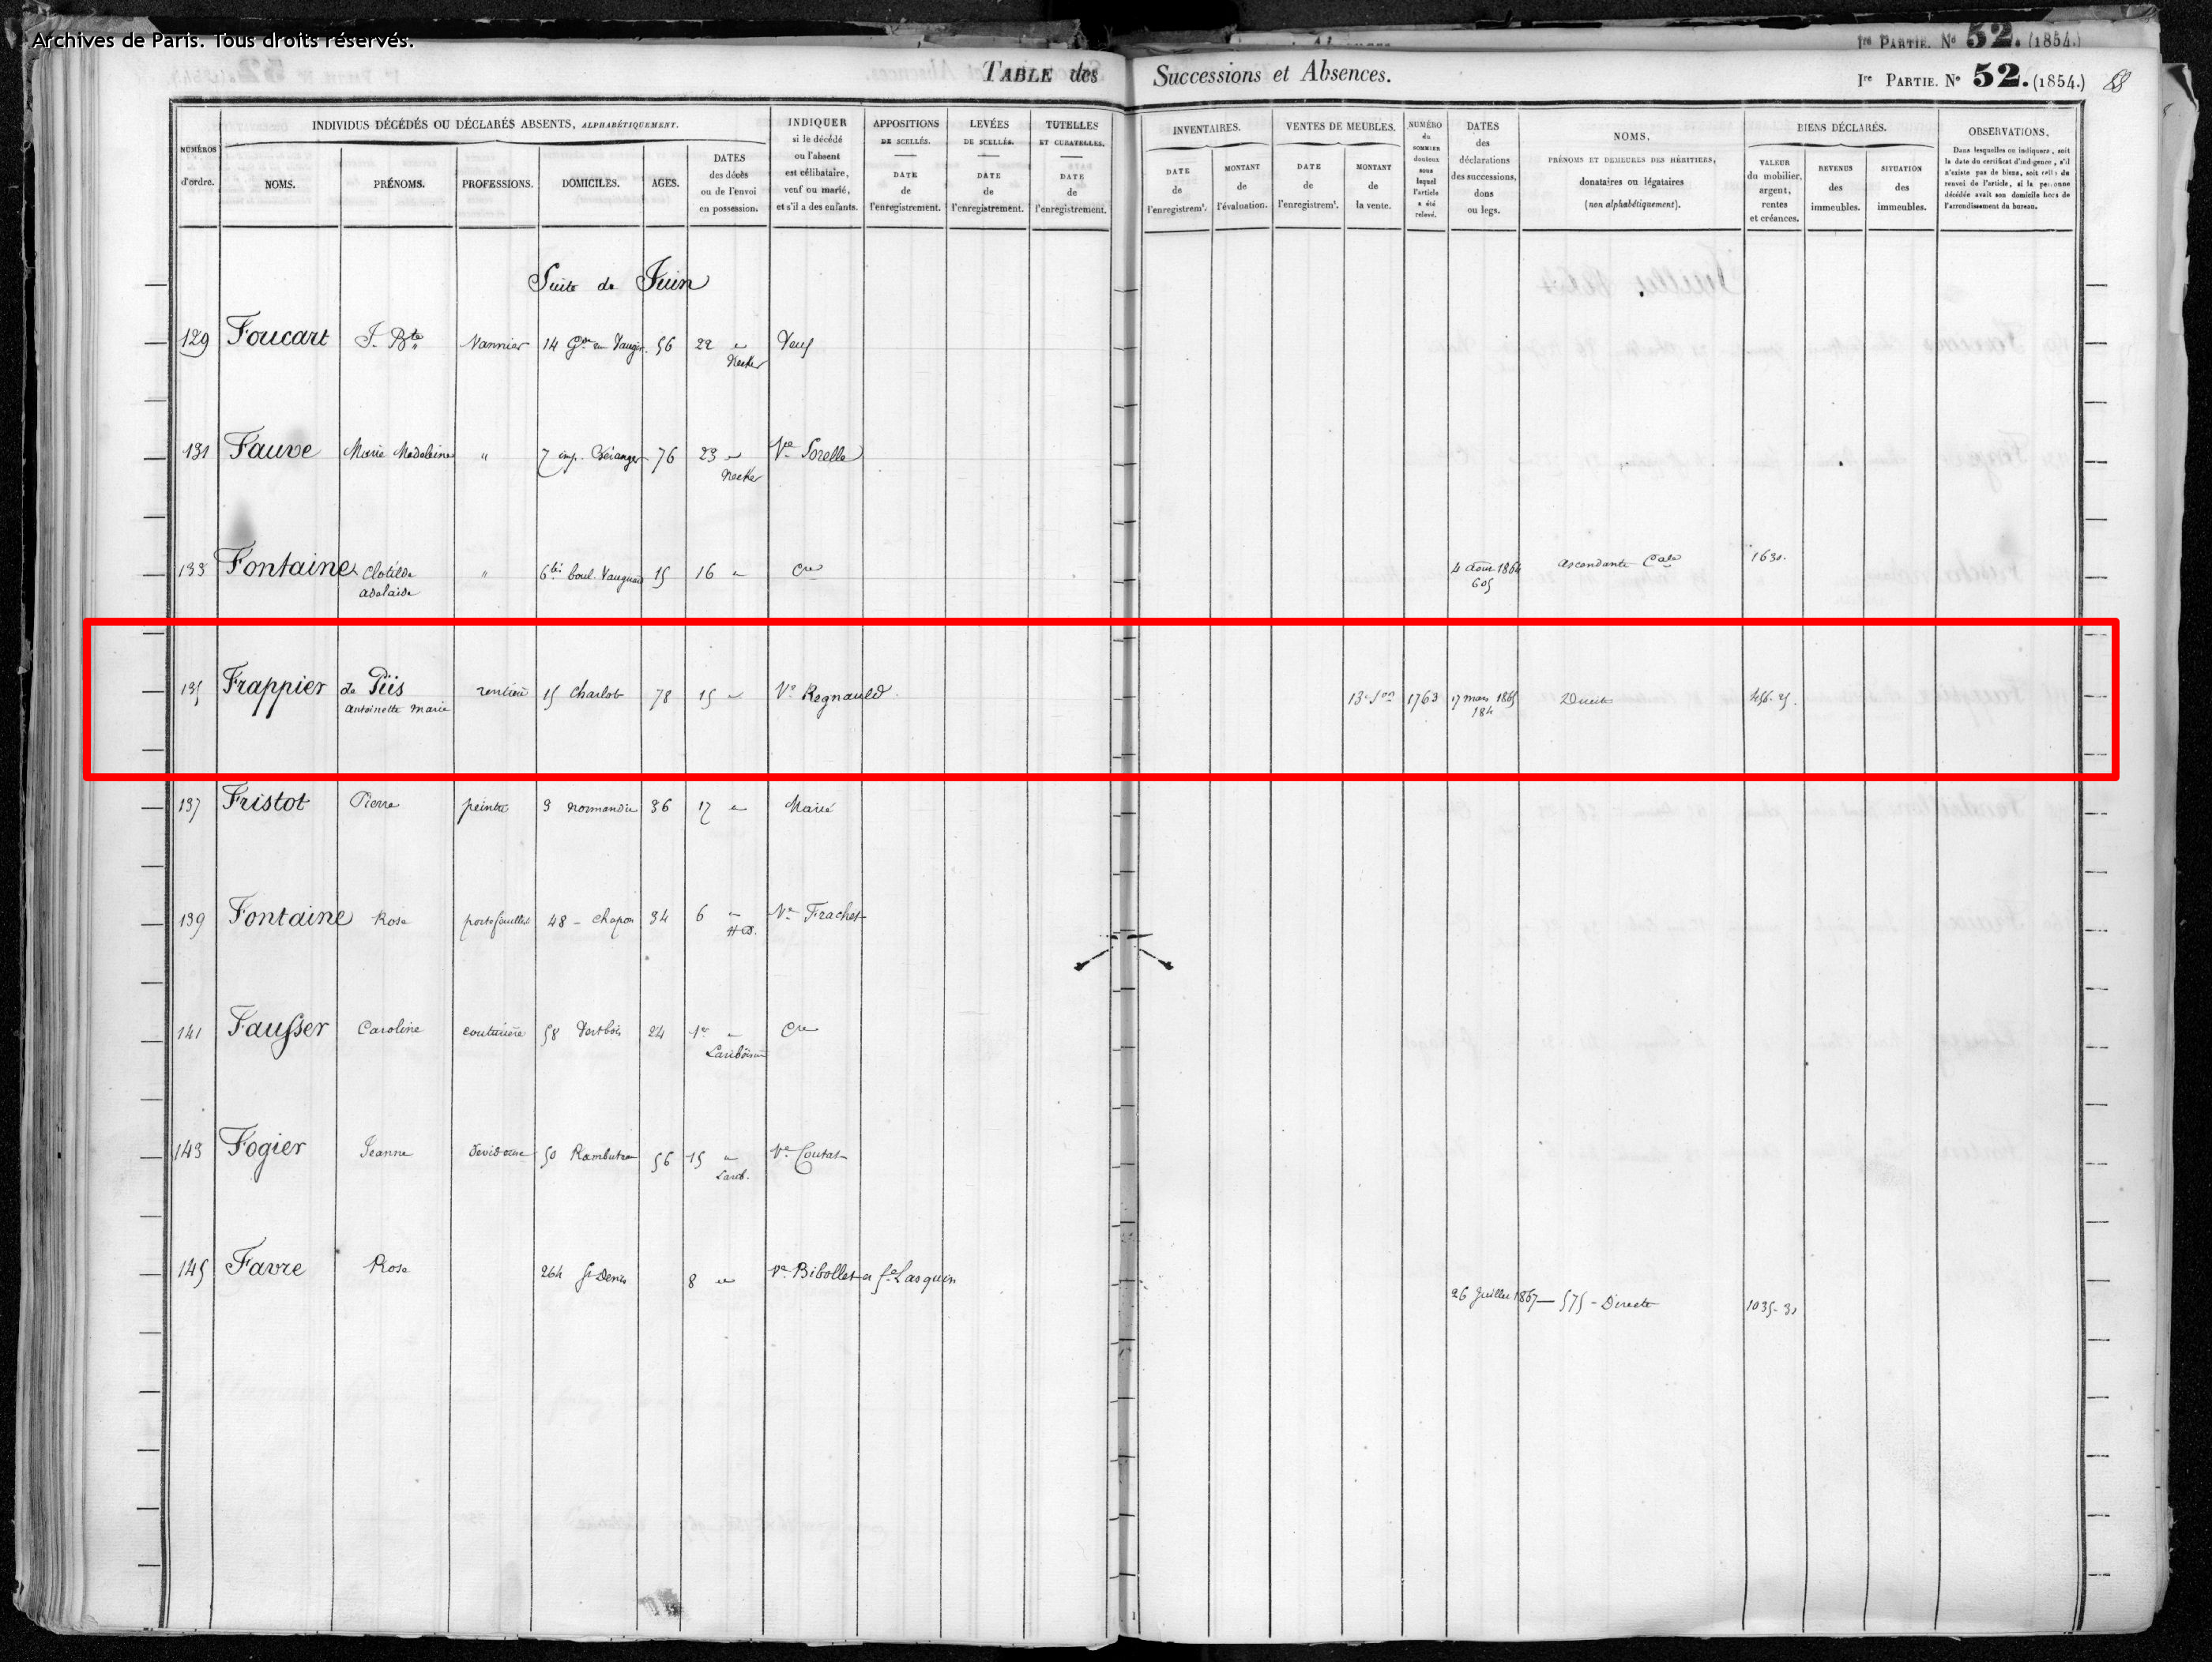 Archives de Paris. Tous droits réservés.
Ire PARTIE. No 52. (1854.)
TABLE des Successions et Absences.
Ire PARTIE. No 52. (1854.)
NUMÉROS d'ordre.
INDIVIDUS DÉCÉDÉS OU DÉCLARÉS ABSENTS, ALPHABÉTIQUEMENT.
NOMS.
PRÉNOMS.
PROFESSIONS.
DOMICILES.
AGES.
DATES
des décès
ou de l'envoi
en possession.
INDIQUER
si le décédé
ou l'absent
est célibataire,
veuf ou marié,
et s'il a des enfants.
APPOSITIONS
DE SCELLÉS.
DATE
de
l'enregistrement.
LEVÉES
DE SCELLÉS.
DATE
de
l'enregistrement.
TUTELLES
ET CURATELLES.
DATE
de
l'enregistrement.
INVENTAIRES.
DATE
de
l'enregistremt.
MONTANT
de
l'évaluation.
VENTES DE MEUBLES.
DATE
de
l'enregistremt.
MONTANT
de
la vente.
NUMÉRO
du
SOMMIER
douteux
sous
lequel
l'article
a été
relevé.
DATES
des
déclarations
des successions,
dons
ou legs.
NOMS,
PRÉNOMS ET DEMEURES DES HÉRITIERS,
donataires ou légataires
(non alphabétiquement).
BIENS DÉCLARÉS.
VALEUR
du mobilier,
argent,
rentes
et créances.
REVENUS
des
immeubles.
SITUATION
des
immeubles.
OBSERVATIONS,
Dans lesquelles on indiquera, soit
la date du certificat d'indigence, s'il
n'existe pas de biens, soit celle du
renvoi de l'article, si la personne
décédée avait son domicile hors de
l'arrondissement du bureau.
Suite de Juin
129 Foucart J. Bte Vannier 14 Gde rue Vaugir. 56 22 " Veuf
Necker
131 Fauve Marie Madeleine " 7 imp. Béranger 76 23 " Ve Sorelle
Necker
133 Fontaine Clotilde " 6 bis boul. Vaugirard 15 16 " Cre 4 août 1864 ascendante 1630.
adelaïde 605
135 Frappier de Piis rentière 15 Charlot 78 15 " Ve Regnauld 1763 17 mars 1865 Directe 456-25.
antoinette marie 184
137 Fristot Pierre peintre 9 normandie 36 17 " Marié
139 Fontaine Rose portefeuilles 48 - Chapon 34 6 " Ve Frachet
HD.
141 Fausser Caroline couturière 58 Vertbois 24 1er " Cre
Lariboisière
143 Fogier Jeanne devideuse 50 Rambuteau 56 15 " Ve Coutat
Larib.
145 Favre Rose 264 St Denis 8 " Ve Bibollet et fe Lasquin
26 Juillet 1867 - 575 - Directe 1035-30